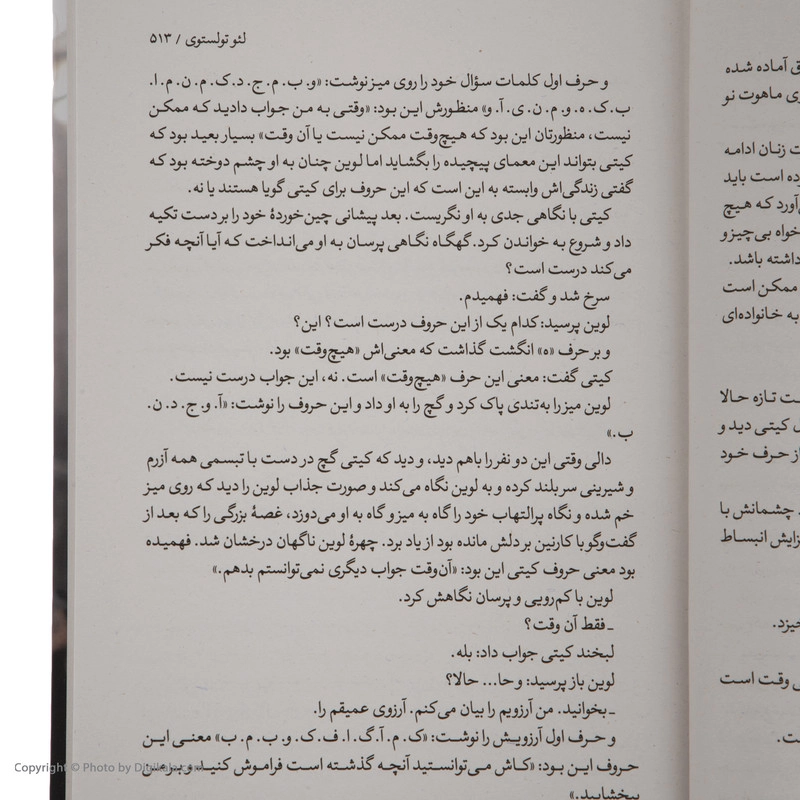 لئو تولستوی / ۵۱۳
و حرف اول کلمات سؤال خود را روی میز نوشت: «و. ب. م. ج. د. ک. م. ن. م. ا.
ب. ک. ه. و. م. ن. ی. آ. و» منظورش این بود: «وقتی به من جواب دادید که ممکن
نیست، منظورتان این بود که هیچ‌وقت ممکن نیست یا آن وقت» بسیار بعید بود که
کیتی بتواند این معمای پیچیده را بگشاید اما لوین چنان به او چشم دوخته بود که
گفتی زندگی‌اش وابسته به این است که این حروف برای کیتی گویا هستند یا نه.
کیتی با نگاهی جدی به او نگریست. بعد پیشانی چین‌خوردهٔ خود را بر دست تکیه
داد و شروع به خواندن کرد. گهگاه نگاهی پرسان به او می‌انداخت که آیا آنچه فکر
می‌کند درست است؟
سرخ شد و گفت: فهمیدم.
لوین پرسید: کدام یک از این حروف درست است؟ این؟
و بر حرف «ه» انگشت گذاشت که معنی‌اش «هیچ‌وقت» بود.
کیتی گفت: معنی این حرف «هیچ‌وقت» است. نه، این جواب درست نیست.
لوین میز را به‌تندی پاک کرد و گچ را به او داد و این حروف را نوشت: «آ. و. ج. د. ن.
ب.»
دالی وقتی این دو نفر را باهم دید، و دید که کیتی گچ در دست با تبسمی همه آزرم
و شیرینی سر بلند کرده و به لوین نگاه می‌کند و صورت جذاب لوین را دید که روی میز
خم شده و نگاه پرالتهاب خود را گاه به میز و گاه به او می‌دوزد، غصهٔ بزرگی را که بعد از
گفت‌وگو با کارنین بر دلش مانده بود از یاد برد. چهرهٔ لوین ناگهان درخشان شد. فهمیده
بود معنی حروف کیتی این بود: «آن‌وقت جواب دیگری نمی‌توانستم بدهم.»
لوین با کم‌رویی و پرسان نگاهش کرد.
ـ فقط آن وقت؟
لبخند کیتی جواب داد: بله.
لوین باز پرسید: و حا... حالا؟
ـ بخوانید. من آرزویم را بیان می‌کنم. آرزوی عمیقم را.
و حرف اول آرزویش را نوشت: «ک. م. آ. گ. ا. ف. ک. و. ب. م. ب» معنی این
حروف این بود: «کاش می‌توانستید آنچه گذشته است فراموش کنید و بر من
ببخشایید.»
ق آماده شده
ی ماهوت نو
ت زنان ادامه
ده است باید
آورد که هیچ
خواه بی‌چیز و
داشته باشد.
ممکن است
به خانواده‌ای
ت تازه حالا
کیتی دید و
از حرف خود
چشمانش با
زایش انبساط
خیزد.
وقت است
ت.
Copyright © Photo by Digikala.com